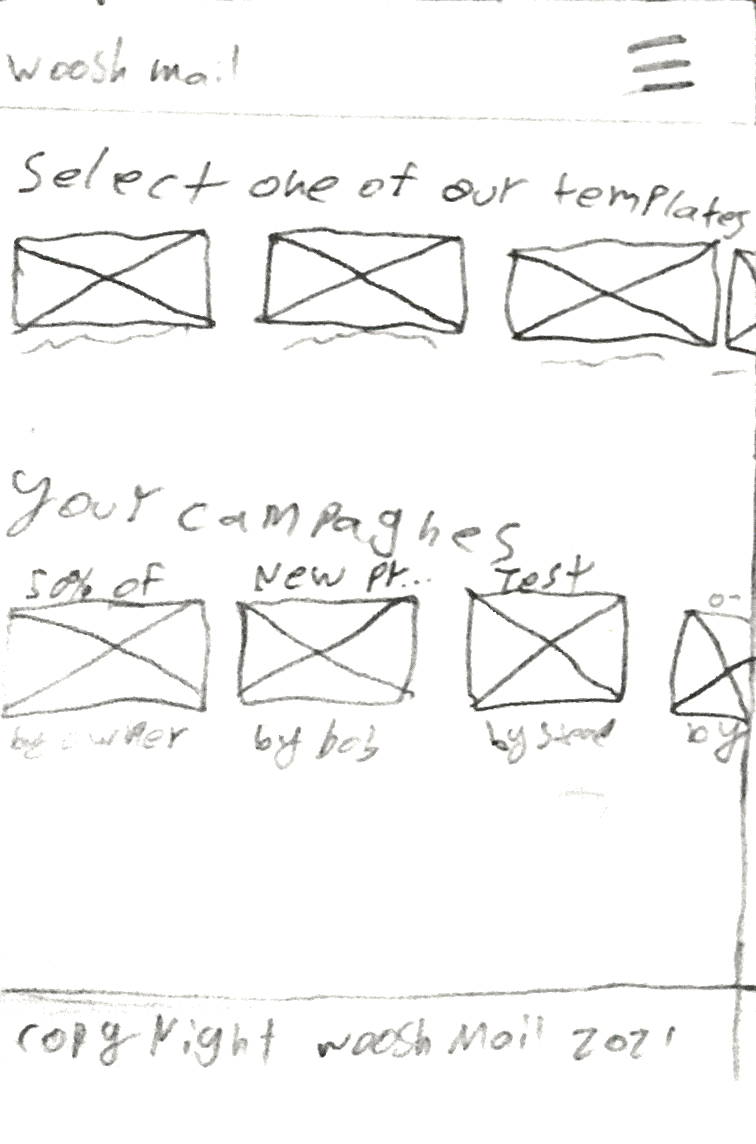 woosh mail
Select one of our templates
your campaghes
50% of
New Pr...
Test
by owner
by bob
by
by
copyright woosh Mail 2021